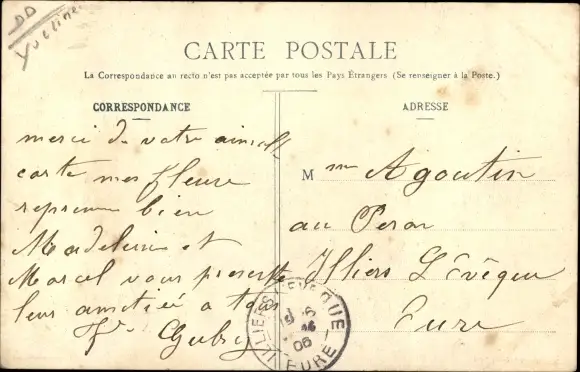 Yveline
CARTE POSTALE
La Correspondance au recto n'est pas acceptée par tous les Pays Étrangers (Se renseigner à la Poste.)
CORRESPONDANCE
merci de votre aimable
carte mes fleurs
reprenne bien
Madeleine et
Marcel vous présente
leur amitiée a tous
ADRESSE
Mme Agoutin
au Peron
Illiers L'Evêque
Eure
ILLIERS-L'EVÊQUE
06
EURE